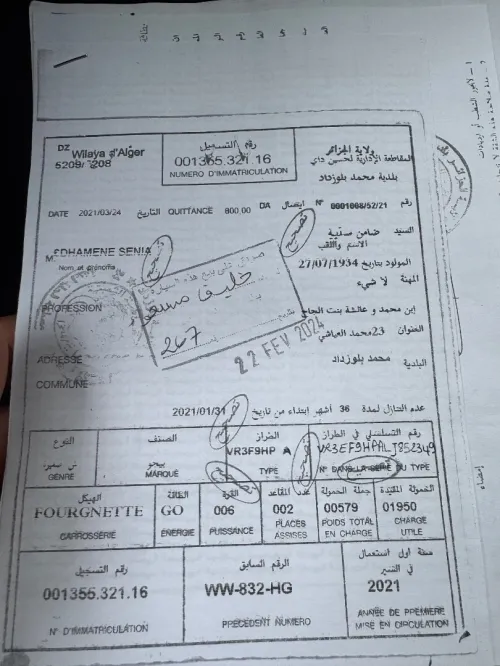 DZ
Wilaya d'Alger
5209/ 208
رقم التسجيل
001355.321.16
NUMERO D'IMMATRICULATION
ولاية الجزائر
المقاطعة الإدارية لحسين داي
بلدية محمد بلوزداد
DATE 2021/03/24 التاريخ QUITTANCE 800,00 DA ايصال N° 0001008/52/21 رقم
MEDHAMENE SENIA
Nom et prénoms
السيد ضامن سنية
الاسم واللقب
المولود بتاريخ 27/07/1934
المهنة لا شيء
PROFESSION
إبن محمد و عائشة بنت الحاج
العنوان 23محمد العياشي
ADRESSE
البلدية محمد بلوزداد
COMMUNE
خليفي مسعود
267
22 FEV 2024
تصحيح
تصحيح
عدم التنازل لمدة 36 أشهر إبتداء من تاريخ 2021/01/31
تصحيح
النوع
GENRE
الصنف
بيجو
MARQUE
الطراز
VR3F9HP A
TYPE
رقم التسلسلي في الطراز
VR3EF9HPALJ852349
N° DANS LA SERIE DU TYPE
الهيكل
FOURGNETTE
CARROSSERIE
الطاقة
GO
ENERGIE
القوة
006
PUISSANCE
عدد المقاعد
002
PLACES ASSISES
جملة الحمولة
00579
POIDS TOTAL EN CHARGE
الحمولة المقيدة
01950
CHARGE UTILE
رقم التسجيل
001355.321.16
N° D'IMMATRICULATION
الرقم السابق
WW-832-HG
PRECEDENT NUMERO
سنة أول استعمال
في السير
2021
ANNÉE DE PREMIERE
MISE EN CIRCULATION
إمضاء